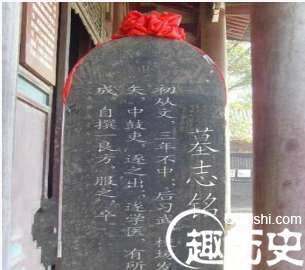 墓志铭
初从文、三年不中、后习武、校场发
矢，中鼓吏，逐之出；遂学医，有所
成，自撰一良方，服之，卒
shi.com
趣历史